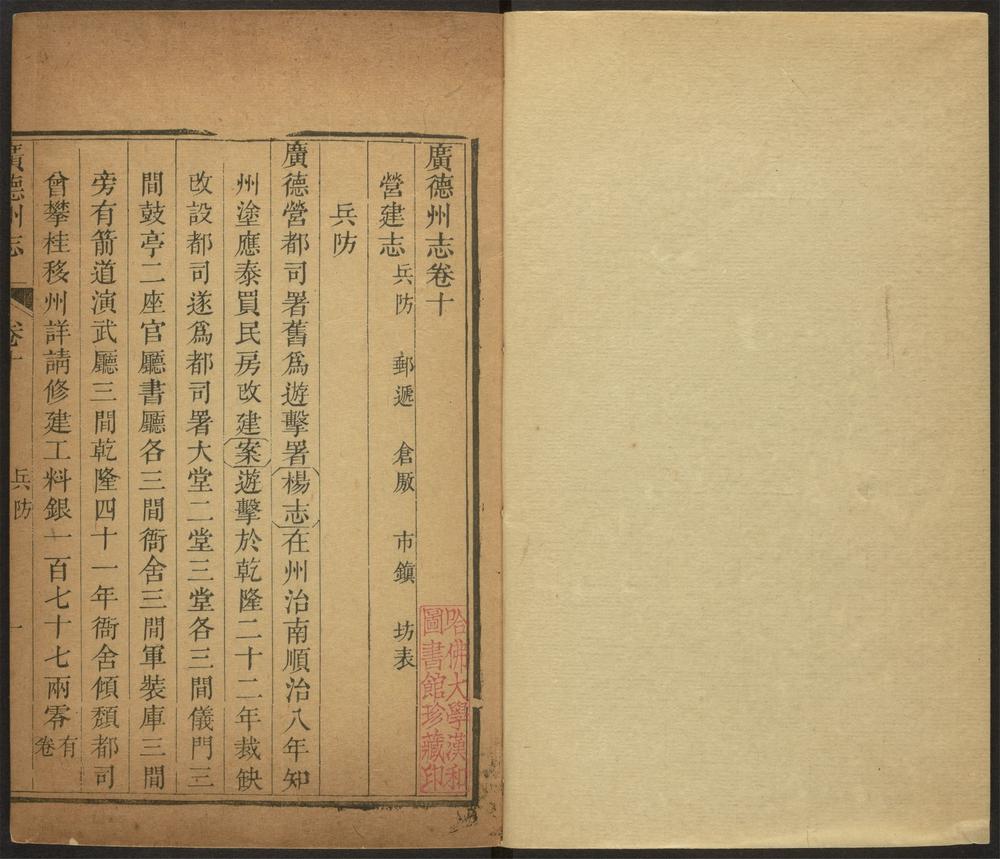 廣德州志卷十
營建志 兵防 郵遞 倉厫 市鎮 坊表
兵防
廣德營都司署舊爲遊擊署楊志在州治南順治八年知
州塗應泰買民房改建案遊擊於乾隆二十二年裁缺
改設都司遂爲都司署大堂二堂三堂各三間儀門三
間鼓亭二座官廳書廳各三間衙舍三間軍裝庫三間
旁有箭道演武廳三間乾隆四十一年衙舍傾頽都司
曾攀桂移州詳請修建工料銀一百七十七兩零有卷
廣德州志 卷十 兵防 一
哈佛大學漢和
圖書館珍藏印